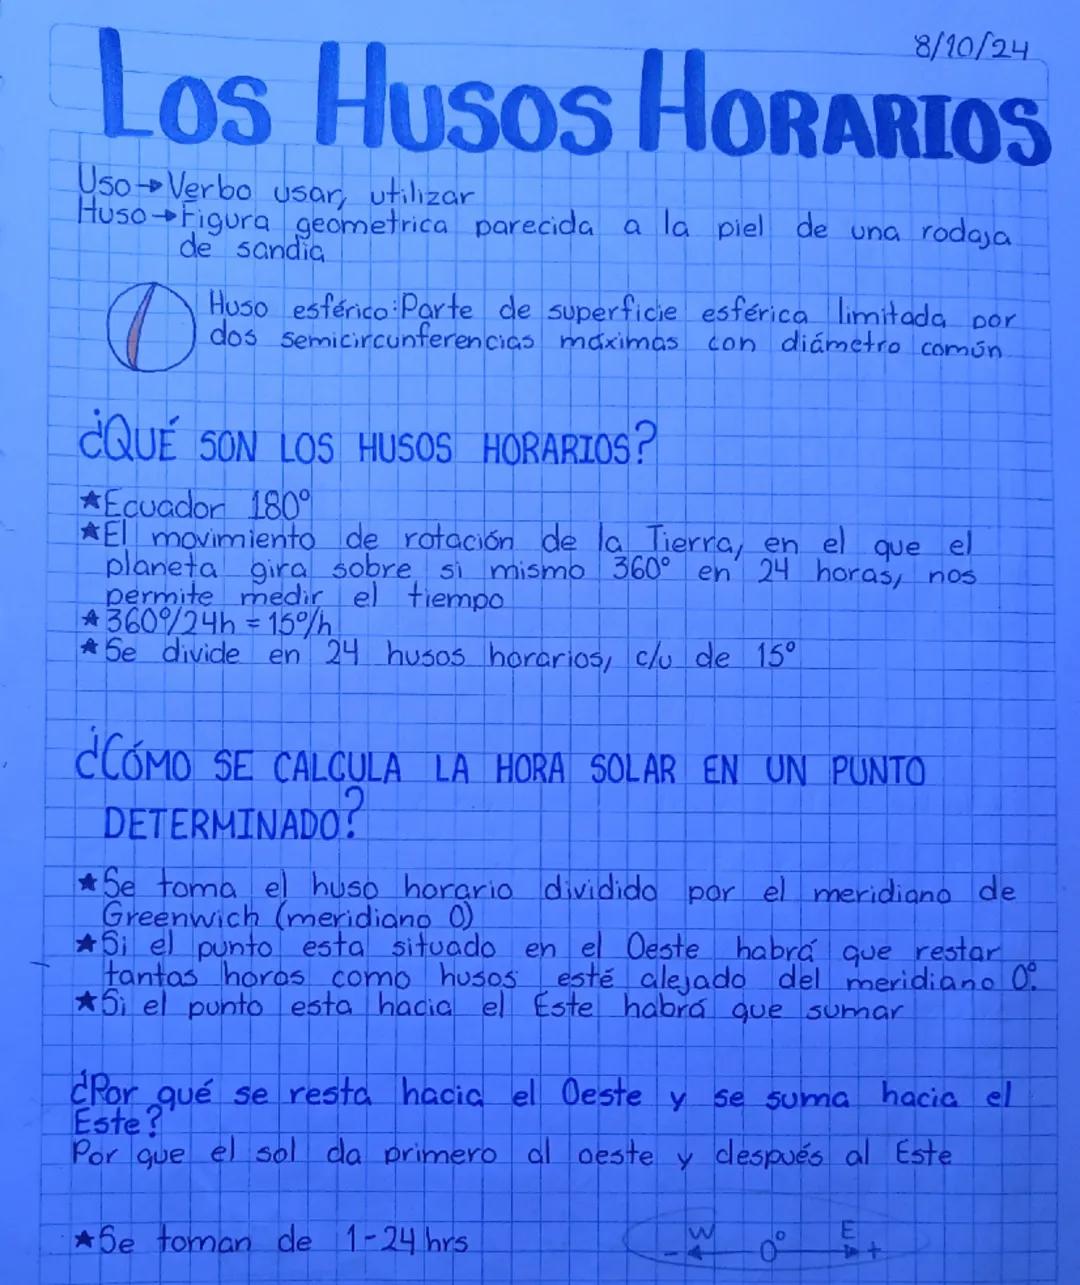 8/10/24
LOS HUSOS HORARIOS
Uso→Verbo usar, utilizar
Huso→Figura geometrica parecida a la piel de una rodaja
de sandia
Huso esférico: Parte de superficie esférica limitada por
dos semicircunferencias máximas con diámetro común
¿QUÉ SON LOS HUSOS HORARIOS?
★Ecuador 180°
★El movimiento de rotación de la Tierra, en el que el
planeta gira sobre si mismo 360° en 24 horas, nos
permite medir el tiempo
★360°/24h = 15°/h
★Se divide en 24 husos horarios, c/u de 15°
¿CÓMO SE CALCULA LA HORA SOLAR EN UN PUNTO
DETERMINADO?
★Se toma el huso horario dividido por el meridiano de
Greenwich (meridiano 0)
★Si el punto esta situado en el Oeste habrá que restar
tantas horas como husos esté alejado del meridiano 0°.
★Si el punto esta hacia el Este habrá que sumar
¿Por qué se resta hacia el Oeste y se suma hacia el
Este?
Por que el sol da primero al oeste y después al Este
★Se toman de 1-24 hrs
W 0° E
- +